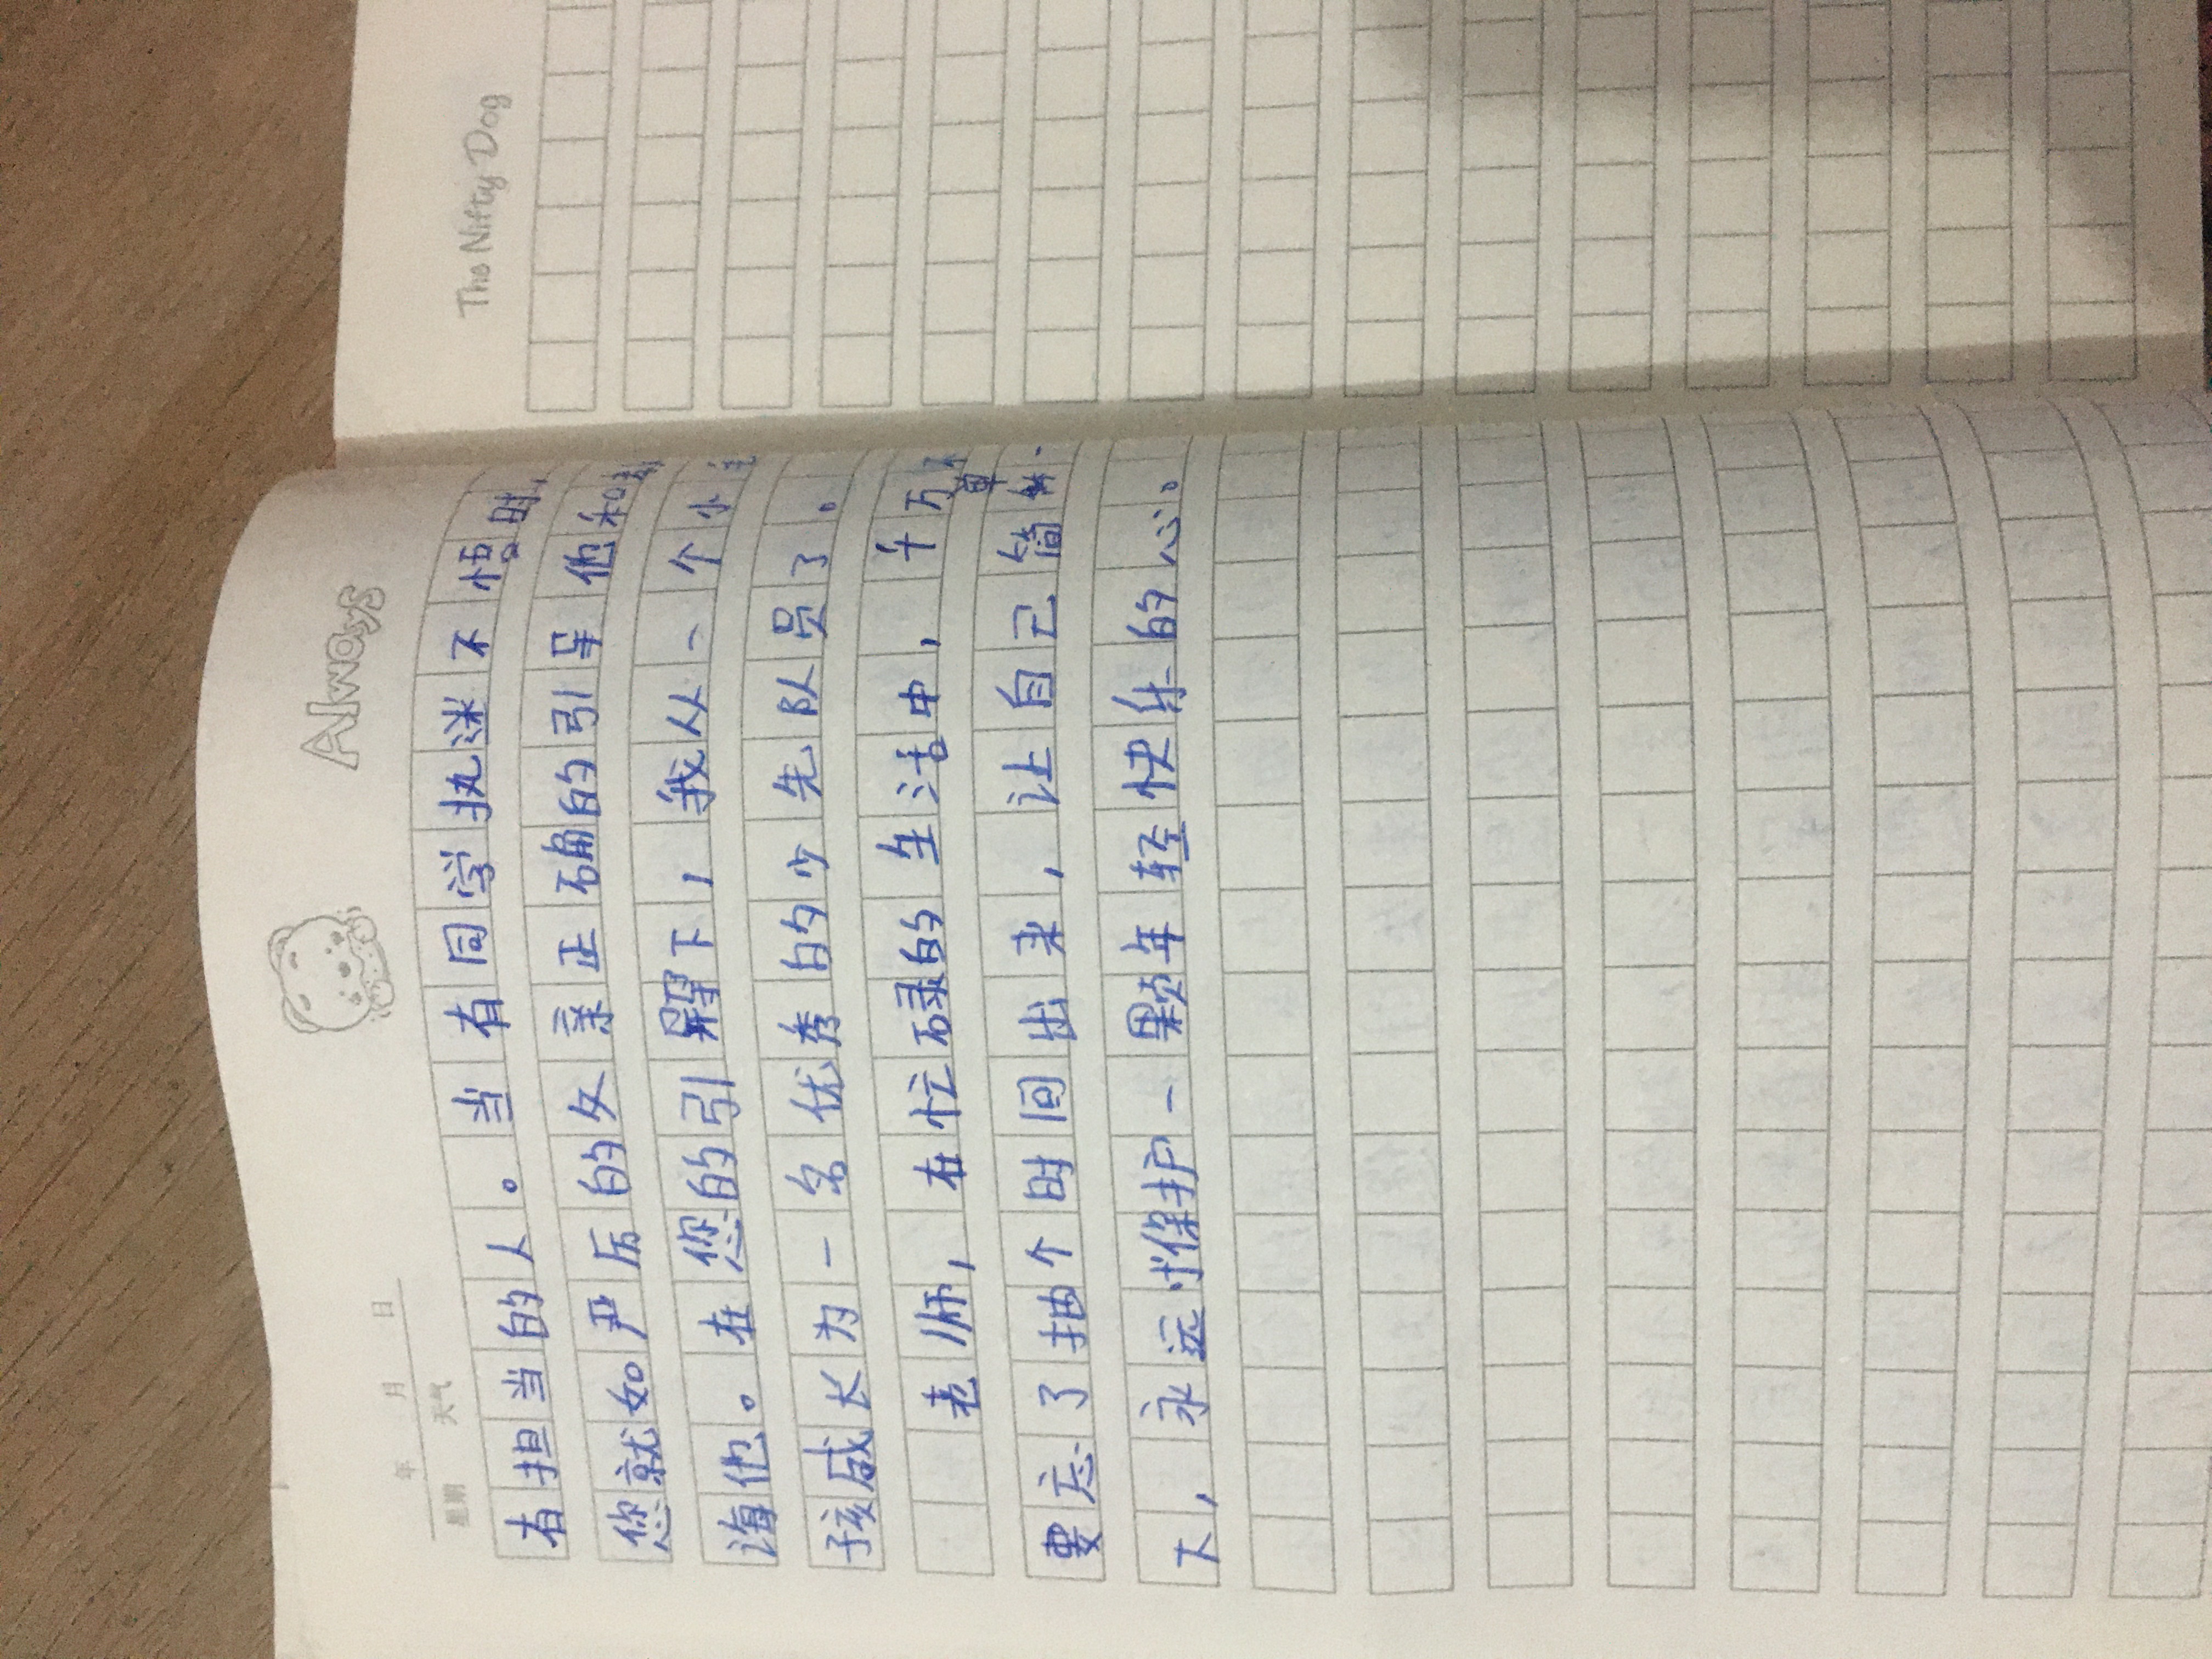 Always
年 月 日
星期 天气
有担当的人。当有同学执迷不悟时,
您就如严厉的父亲正确的引导他和
诲他。在您的引羿下,我从一个小
孩成长为一名优秀的少先队员了。
老师,在忙碌的生活中,千万
要忘了抽个时间出来,让自己简单
下,永远保护一颗年轻快乐的心。
The Nifty Dog